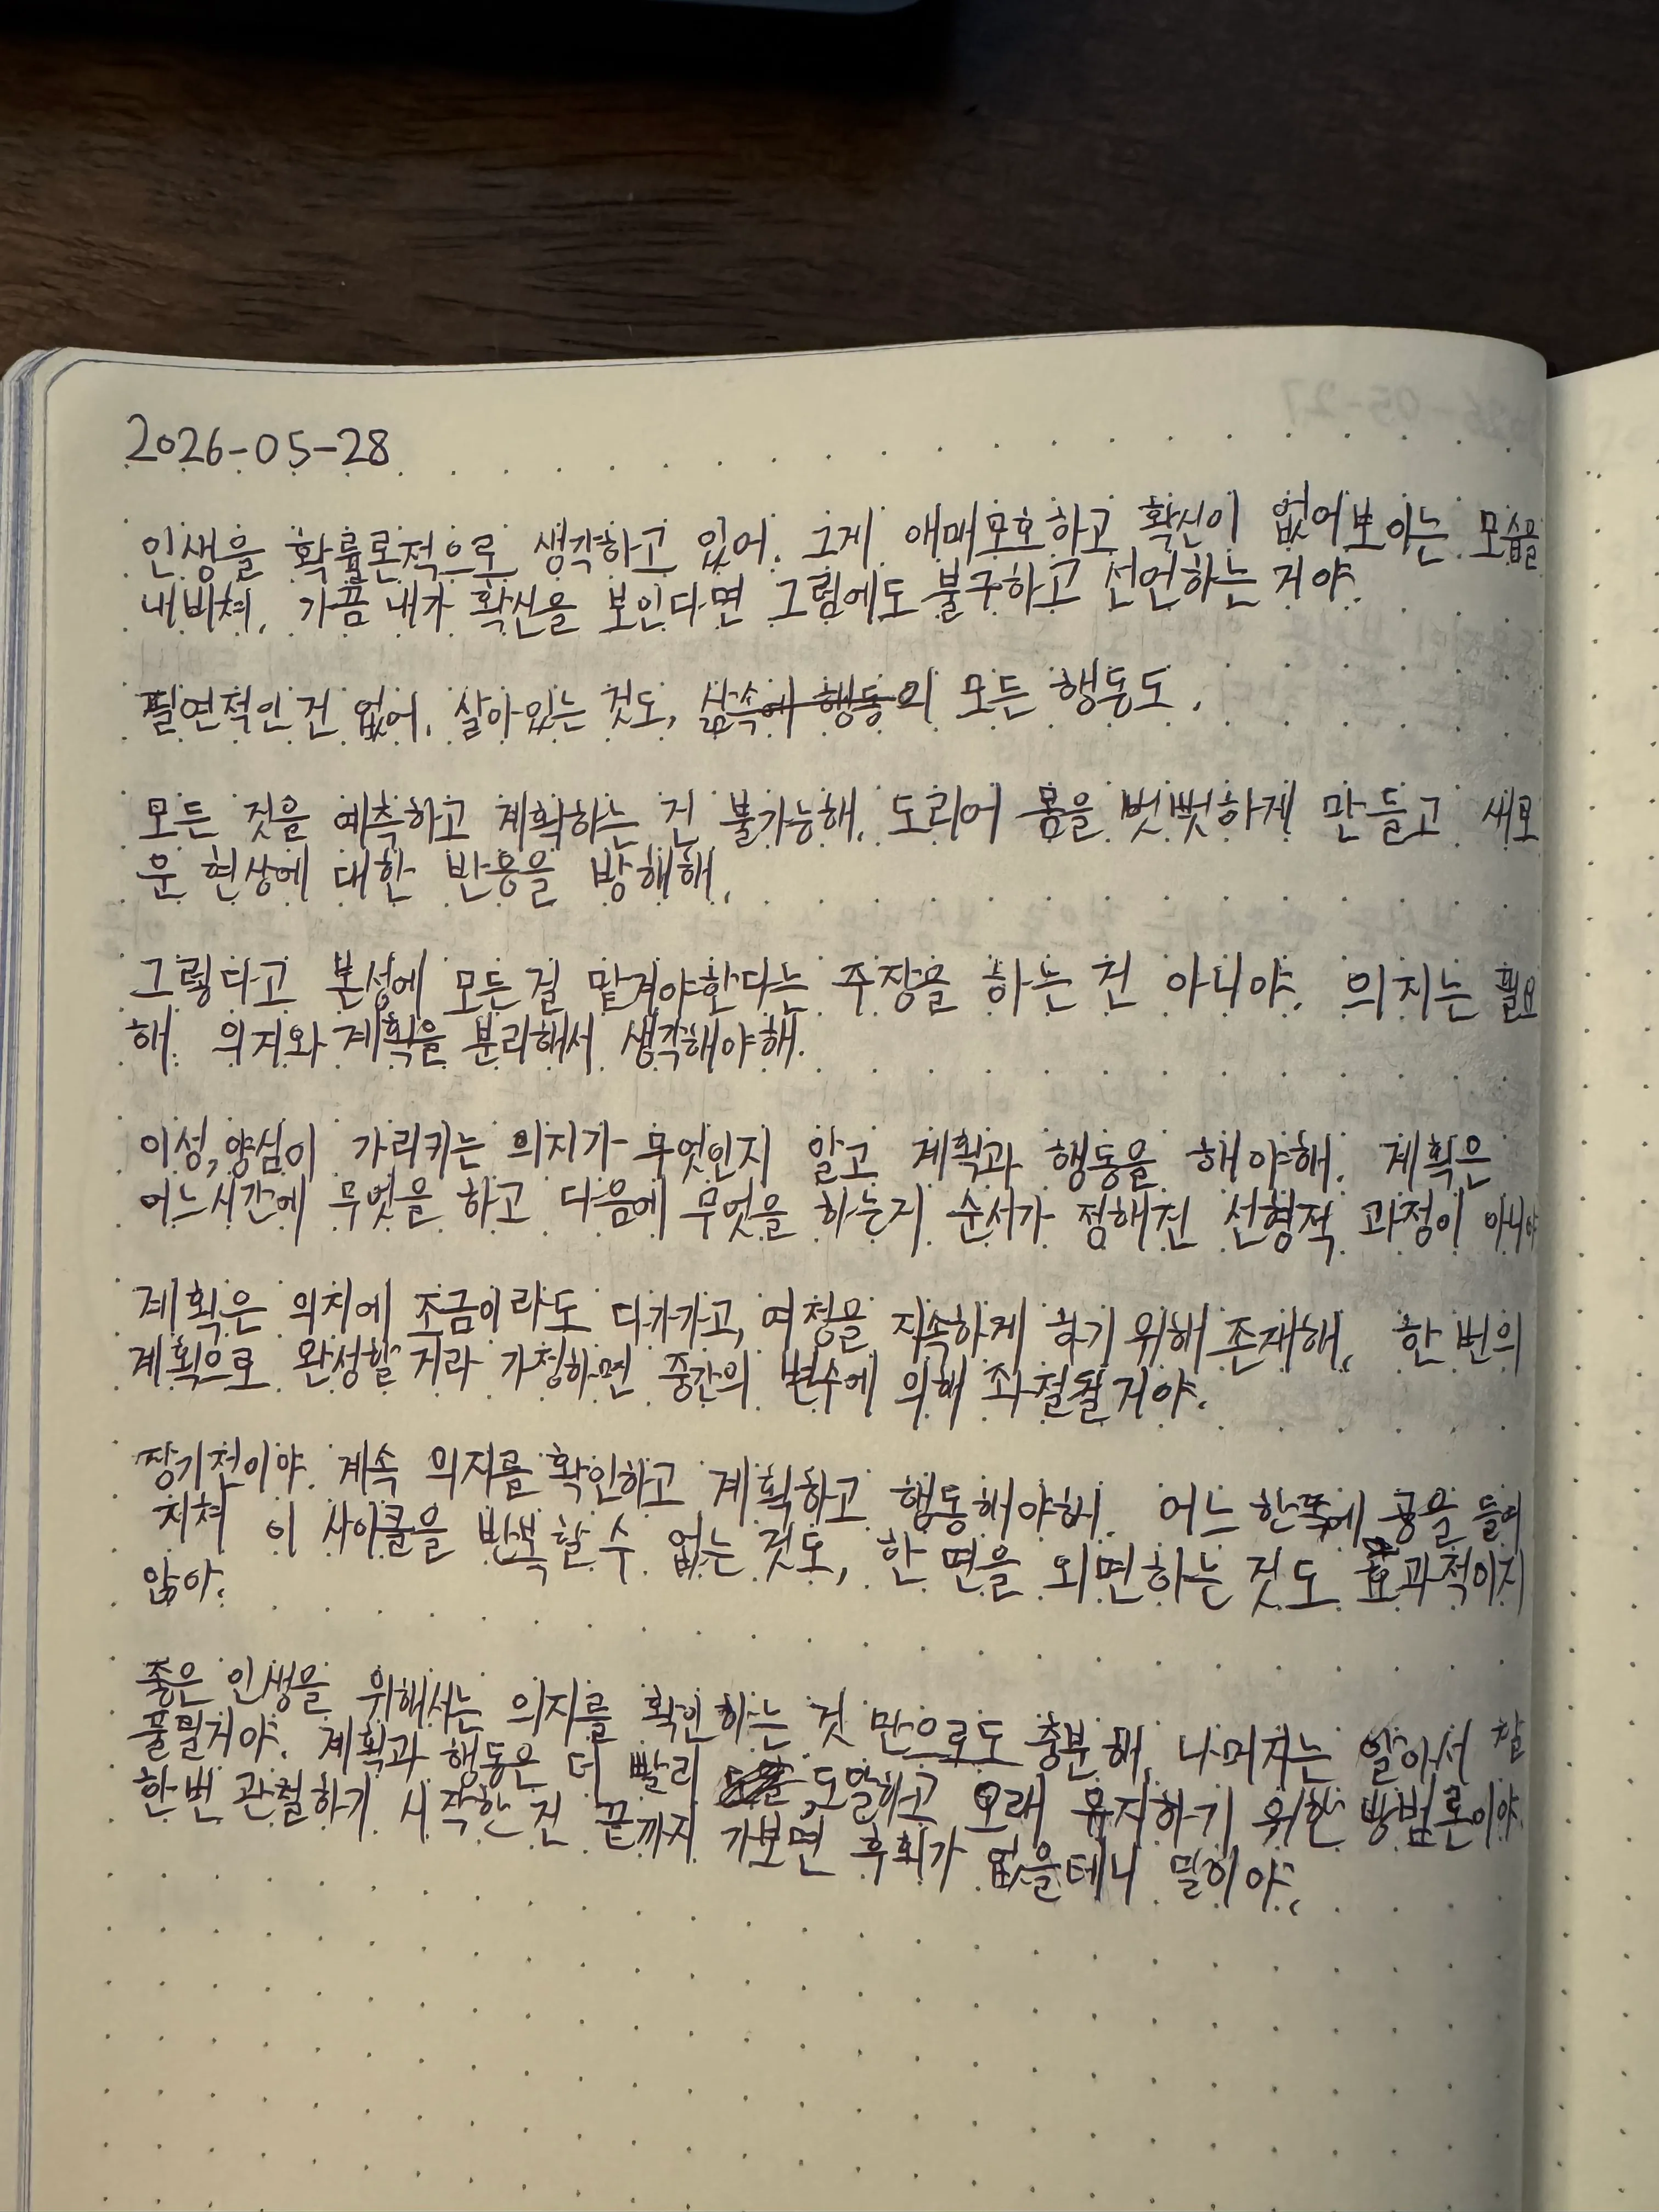 2026-05-28
인생을 확률론적으로 생각하고 있어. 그게 애매모호하고 확신이 없어보이는 모습을
내비쳐. 가끔 내가 확신을 보인다면 그럼에도 불구하고 선언하는 거야.
필연적인 건 없어. 살아있는 것도, 삶속에 행동의 모든 행동도.
모든 것을 예측하고 계획하는 건 불가능해. 도리어 몸을 뻣뻣하게 만들고 새로
운 현상에 대한 반응을 방해해.
그렇다고 본성에 모든걸 맡겨야한다는 주장을 하는 건 아니야. 의지는 필요
해. 의지와 계획을 분리해서 생각해야해.
이성, 양심이 가리키는 의지가 무엇인지 알고 계획과 행동을 해야해. 계획은
어느시간에 무엇을 하고 다음에 무엇을 하는지 순서가 정해진 선형적 과정이 아니야
계획은 의지에 조금이라도 다가가고, 여정을 지속하게 하기 위해 존재해. 한 번의
계획으로 완성할 거라 가정하면 중간의 변수에 의해 좌절될거야.
장기전이야. 계속 의지를 확인하고 계획하고 행동해야해. 어느 한쪽에 공을 들여
지쳐 이 사이클을 반복할 수 없는 것도, 한 면을 외면하는 것도 효과적이지
않아.
좋은 인생을 위해서는 의지를 확인하는 것 만으로도 충분해. 나머지는 알아서 잘
풀릴거야. 계획과 행동은 더 빨리 도달하고 오래 유지하기 위한 방법론이야
한번 관철하기 시작한 건 끝까지 가보면 후회가 없을테니 말이야.